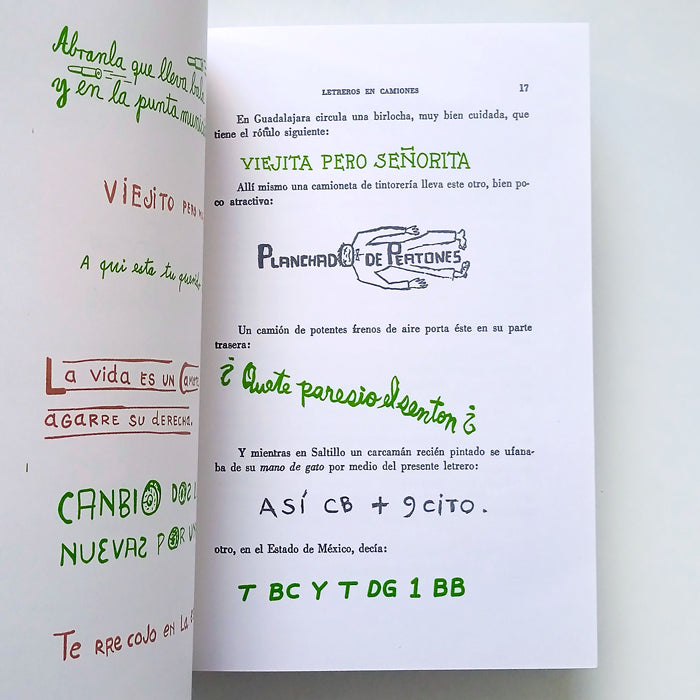 Abranla que lleva bala
y en la punta
VIEJITO PERO
A qui esta tu
La vida ES UN
AGARRE SU DERECHA.
CANBIO DOS
NUEVAS POR UN
Te RRE COJO EN LA
LETREROS EN CAMIONES 17
En Guadalajara circula una birlocha, muy bien cuidada, que
tiene el rótulo siguiente:
VIEJITA PERO SEÑORITA
Allí mismo una camioneta de tintorería lleva este otro, bien po-
co atractivo:
PLANCHADO DE PEATONES
Un camión de potentes frenos de aire porta éste en su parte
trasera:
¿Quete paresio el senton¿
Y mientras en Saltillo un carcamán recién pintado se ufana-
ba de su mano de gato por medio del presente letrero:
ASÍ CB + 9CITO.
otro, en el Estado de México, decía:
T BC Y T DG 1 BB